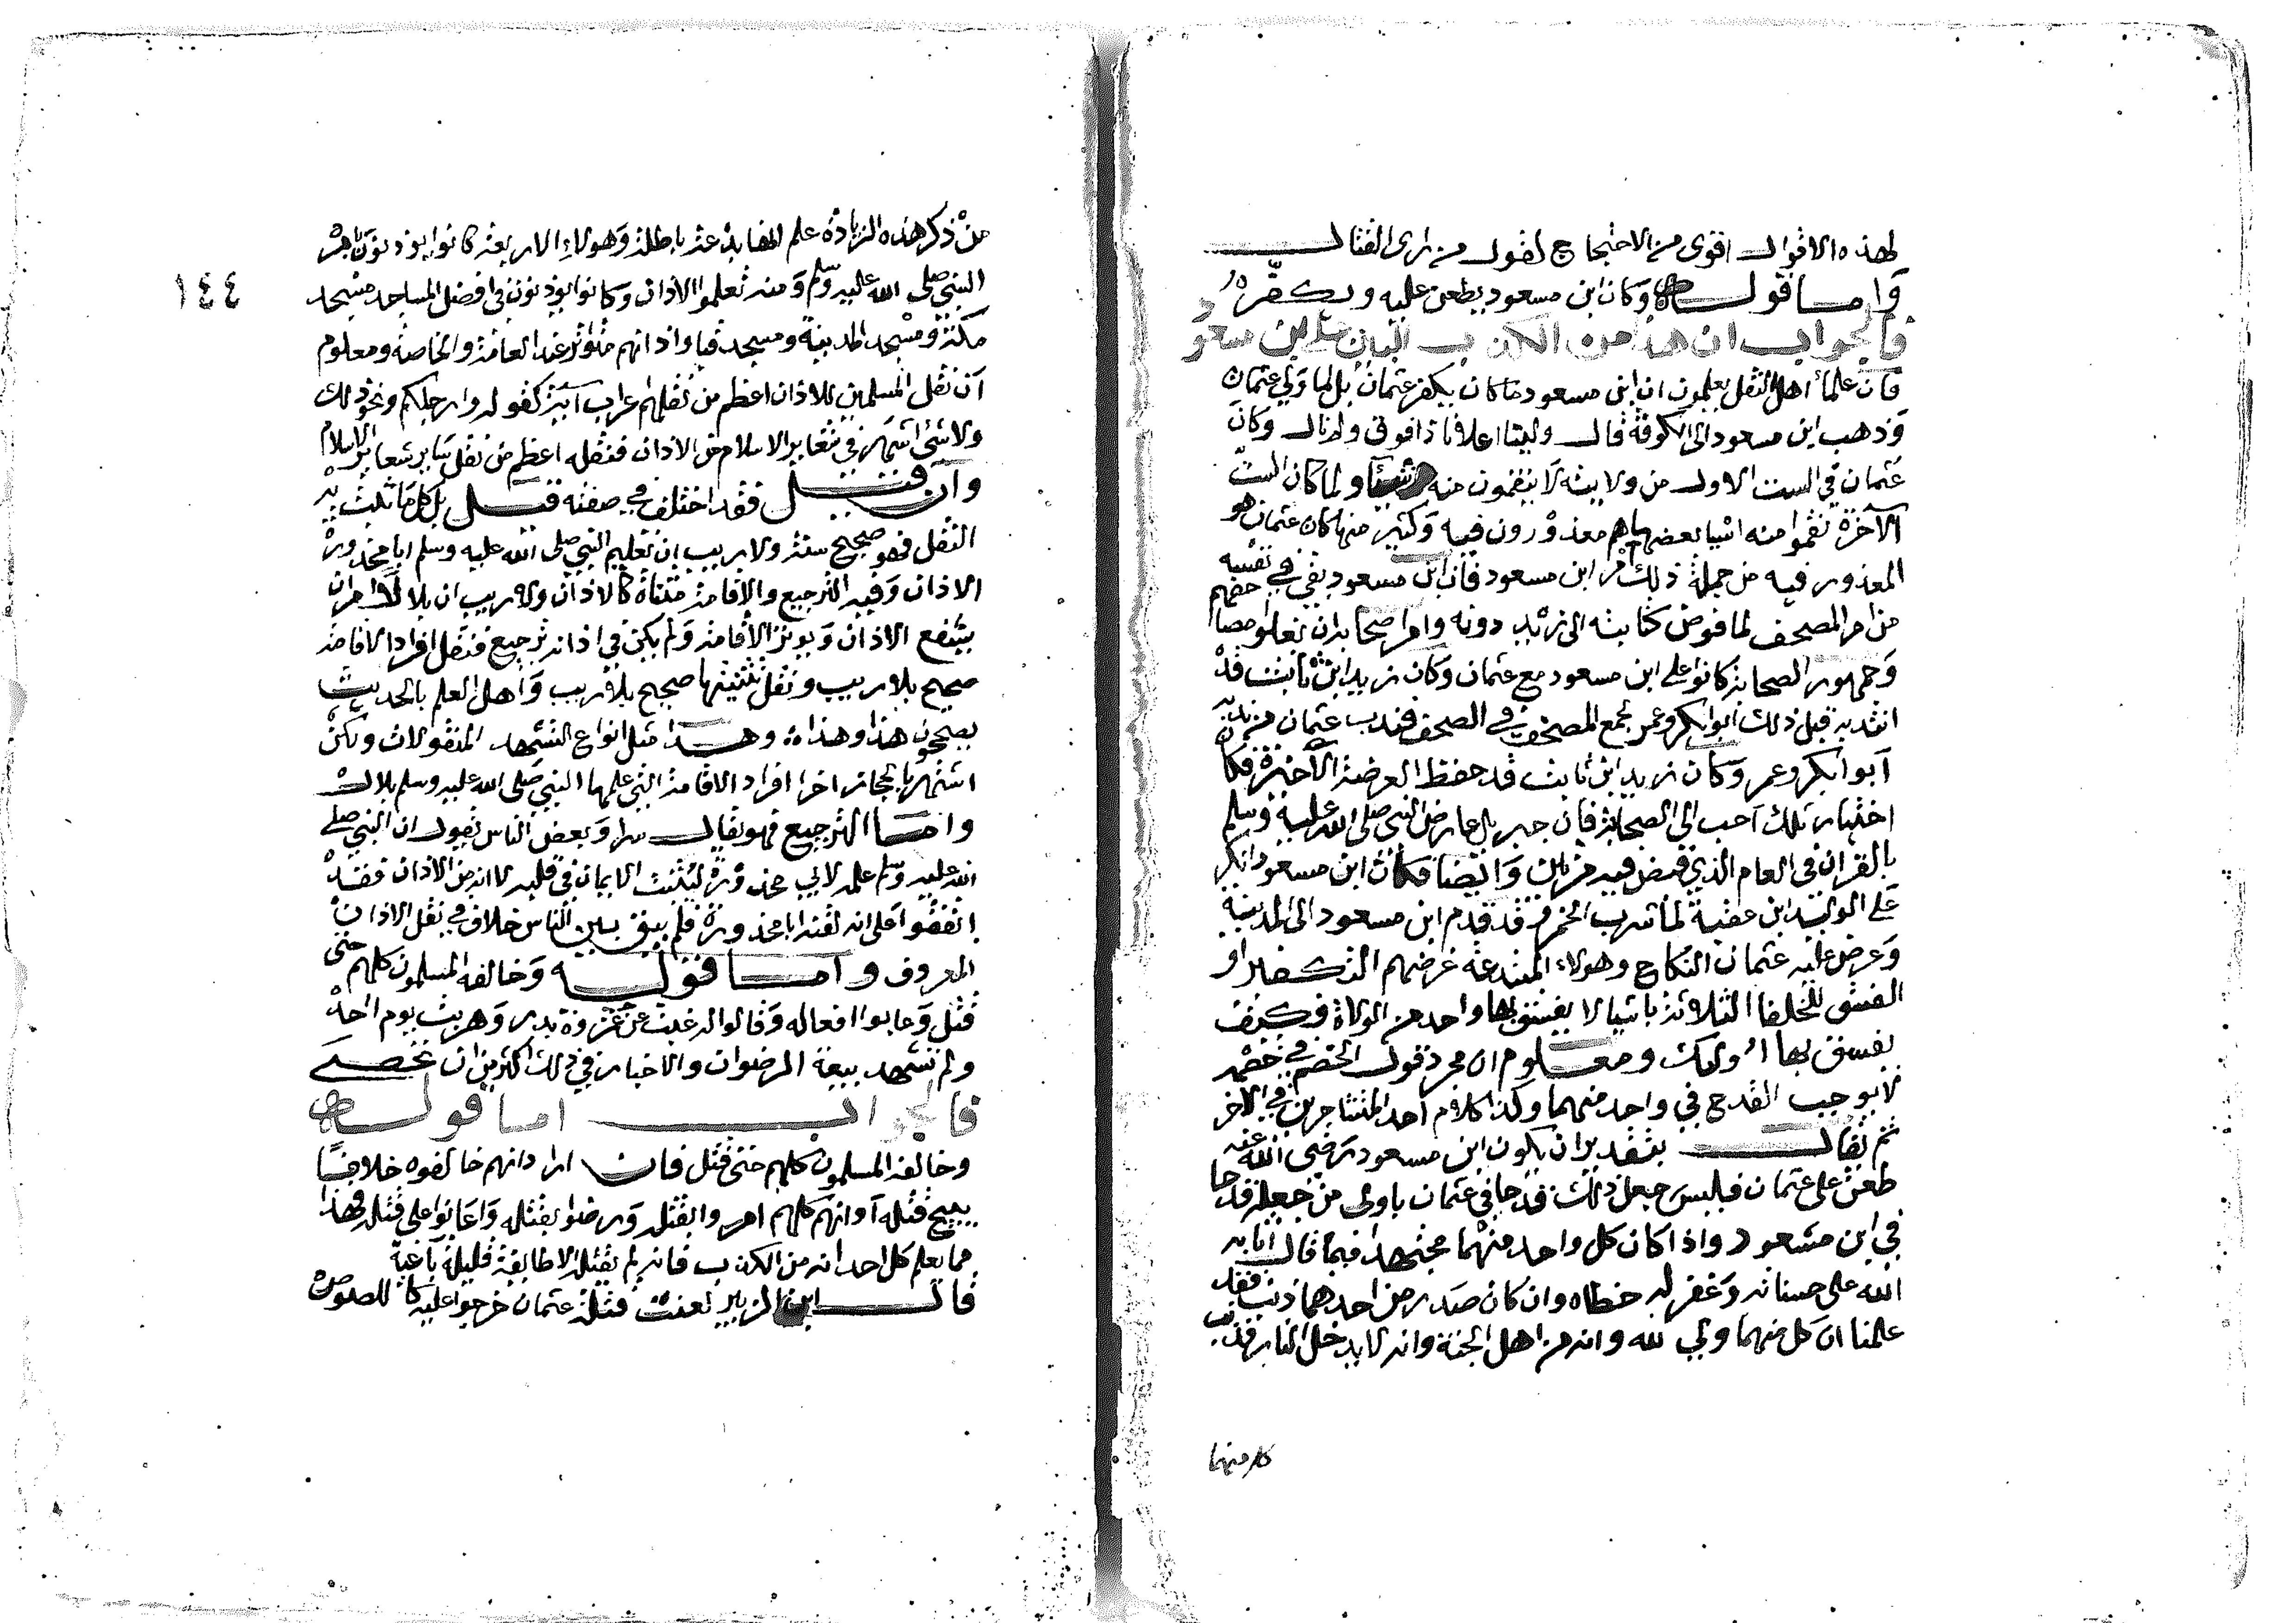 لهذه الاقوال اقوى من الاحتجاج لقول من راى القتال
وَاما قولـــه وَكان ابن مسعود يطعن عليه ويكفّره
فالجواب ان هذا من الكذب البين على ابن مسعود
فان علمأ اهل النقل يعلمون ان ابن مسعود ما كان يكفر عثمان بل لما ولي عثمان
وَذهب ابن مسعود الى الكوفة قال ولينا اعلانا ذا فوق ولم نال وكان
عثمان في الست الاول من ولايته لا ينقمون منه شيئا ولما كان الست
الآخرة نقموا منه اشيا بعضها هم معذورون فيه وَكثير منها كان عثمان هو
المعذور فيه من جملة ذلك امر ابن مسعود فان ابن مسعود بقي في نفسه
من امر المصحف لما فوض كتابته الى زيد دونه وامر اصحابه ان يغلوا مصاحفهم
وَجمهور الصحابة كانوا على ابن مسعود مع عثمان وَكان زيد ابن ثابت قد
انتدبه قبل ذلك ابوابكر وعمر لجمع المصحف في الصحف فندب عثمان من ندبه
آبوا بكر وعمر وَكان زيد ابن ثابت قد حفظ العرضة الآخيرة فكان
اختيار تلك احب الى الصحابة فان جبريل عارض النبي صلى الله عليه وسلم
بالقران في العام الذي قبض فيه مرتين وَايضا فكان ابن مسعود انكر
على الوليد ابن عقبة لما شرب الخمر قد قدم ابن مسعود الى المدينة
وَعرض عليه عثمان النكاح وهولاء المبتدعة غرضهم التكفير او
الفسق للخلفا الثلاثة باشيا لا يفسق بها واحد من الولاة فكيف
يفسق بها اولئك ومعلوم ان مجرد قول الخصم في خصمه
لا يوجب القدح في واحد منهما وكذا كلام احد المتشاجرين في الآخر
ثم يقال بتقدير ان يكون ابن مسعود رضي الله عنه
طعن على عثمان فليس جعل ذلك قدحا في عثمان باولى من جعله قدحا
في ابن مسعود واذا كان كل واحد منهما مجتهدا فيما قال اثابه
الله على حسناته وَغفر له خطاه وان كان صدر من احدهما ذنب فقد
علمنا ان كل منهما ولي لله وانه من اهل الجنة وانه لا يدخل النار فذنب
كل منهما
١٤٤
من ذكر هذه الزيادة علم المضا باطلة وَهولاء الاربعة كانوا يوذنون بامر
النبي صلى الله عليه وسلم وَمنه تعلموا الاذان وكانوا يوذنون في افضل المساجد مسجد
مكة ومسجد المدينة ومسجد قبا واذانهم متواتر عند العامة والخاصة ومعلوم
آن نقل المسلمين للاذان اعظم من نقلهم اعراب آية كقوله وارجلكم ونحو ذلك
ولا شئ اشهر في شعاير الاسلام من الاذان فنقله اعظم من نقل ساير شعاير الاسلام
وان قيل فقد اختلف في صفته قيل بل كل ما ثبت به
النقل فهو صحيح سنة ولا ريب ان تعليم النبي صلى الله عليه وسلم ابا محذورة
الاذان وَفيه الترجيع والاقامة مثناة كالاذان ولا ريب ان بلالا امر ان
يشفع الاذان وَيوتر الاقامة وَلم يكن في اذانه ترجيع فنقل افراد الاقامة
صحيح بلا ريب ونقل تثنيتها صحيح بلا ريب وَاهل العلم بالحديث
يصححون هذا وهذا وهذا مثل انواع التشهد المنقولات ولكن
اشتهر بالحجاز اخرا افراد الاقامة التي علمها النبي صلى الله عليه وسلم بلال
واما الترجيع فهو يقال سرا وَبعض الناس يقول ان النبي صلى
الله عليه وسلم علمه لابي محذورة ليثبت الايمان في قلبه لا انه من الاذان فقد
اتفقوا على انه لقنه ابا محذورة فلم يبق بين الناس خلاف في نقل الاذان
المعروف واما قوله وَخالفه المسلمون كلهم حتى
قتل وَعابوا افعاله وَقالوا له غبت عن غزوة بدر وَهربت يوم احد
ولم تشهد بيعة الرضوان والاخبار في ذلك اكثر من ان تحصى
فالجواب اما قولـــه
وخالفه المسلمون كلهم حتى قتل فان اراد انهم خالفوه خلافا
يبيح قتله آو انهم كلهم امروا بقتله وَرضوا بقتله وَاعانوا على قتله فهذا
مما يعلم كل احد انه من الكذب فانه لم يقتله الا طايفة قليلة باغية
قال ابن الزبير لعنت قتلة عثمان خرجوا عليه كاللصوص